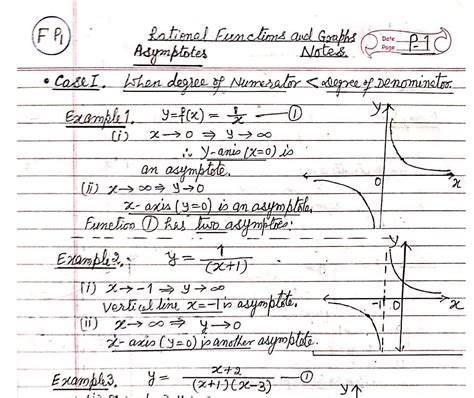 FP1
Rational Functions and Graphs
Asymptotes Notes.
Date
Page P-1
• Case I. When degree of Numerator < Degree of Denominator.
Example 1. y=f(x) = 1/x — ①
(i) x→0 ⇒ y→∞
∴ y-axis (x=0) is
an asymptote.
(ii) x→∞ ⇒ y→0
x-axis (y=0) is an asymptote.
Function ① has two asymptotes.
y
0
x
Example 2. y = 1/(x+1)
(i) x→-1 ⇒ y→∞
Vertical line x=-1 is asymptote.
(ii) x→∞ ⇒ y→0
x-axis (y=0) is another asymptote.
y
-1
0
x
Example 3. y = x+2/(x+1)(x-3) — ①
y↑